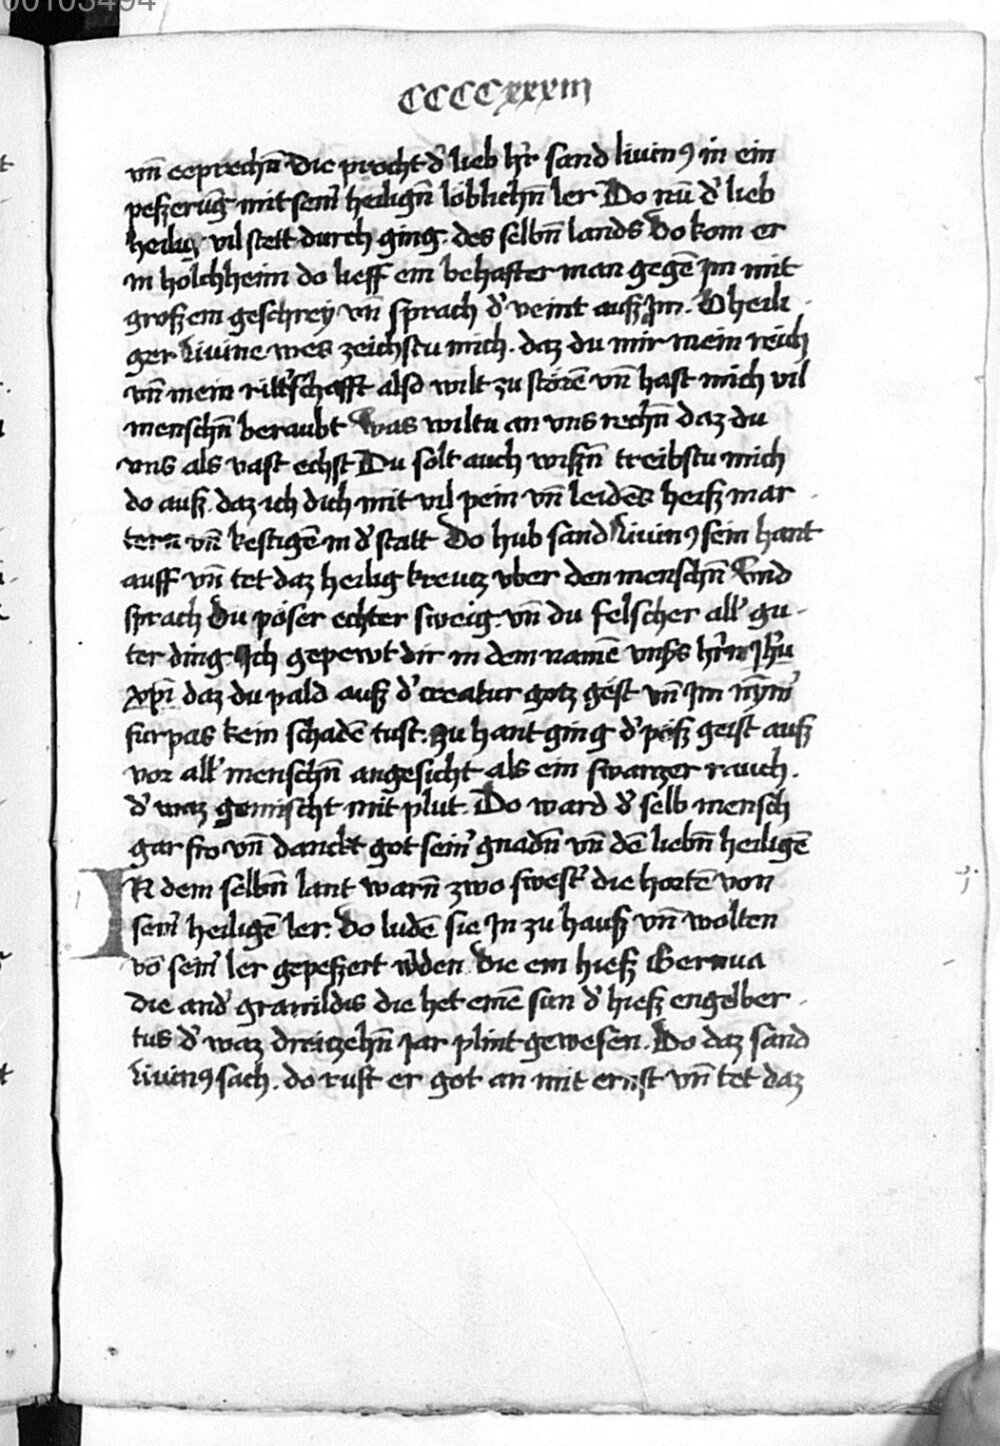 00103494
CCCCxxxiij
vn̄ eeprechn̄ die procht d' lieb hr̄ sand liuinꝰ in ein
peszerūg mit sein' heilign̄ löblichn̄ ler Do nū d' lieb
heilig vil stett durch ging. des selbn̄ lands Do kom er
in holchheim do lieff ein behafter man gegē Im mit
groszem geschrey vn̄ sprach d' veint ausz Im. O heili
ger liuine wes zeichstu mich. daz du mir mein reich
vn̄ mein ritt'schafft also wilt zu störē vn̄ hast mich vil
menschn̄ beraubt Was wiltu an vns rechn̄ daz du
vns als vast echst Du solt auch wiszn̄ treibstu mich
do ausz. daz ich dich mit vil pein vn̄ leidēs heisz mar
tern vn̄ kestigē in d' statt Do hub sand Liuinꝰ sein hant
auff vn̄ tet daz heilig kreutz vber den menschn̄ Vnd
sprach Du pöser echter sweig. vn̄ du felscher all' gu
ter ding. Ich gepewt dir in dem namē vnsers hr̄n Jhū
xpī daz du pald ausz d' creatur gotz gest vn̄ Im nym'
furpas kein schadē tust. Zu hant ging d' pösz geist ausz
vor all' menschn̄ angesicht als ein swarzer rauch.
d' waz gemischt mit plut. Do ward d' selb mensch
gar fro vn̄ danckt got sein' gnadn̄ vn̄ dē liebn̄ heiligē
IN dem selbn̄ lant warn̄ zwo swest' die hortē von
sein' heiligē ler. Do ludē sie In zu hausz vn̄ wolten
vō sein' ler gepeszert w'den. Die ein hiesz Gernua
die and' granildis die het einē sun d' hiesz engelber
tus d' waz dreitzehn̄ Jar plint gewesen. Do daz sand
Liuinꝰ sach. do ruft er got an mit ernst vn̄ tet daz